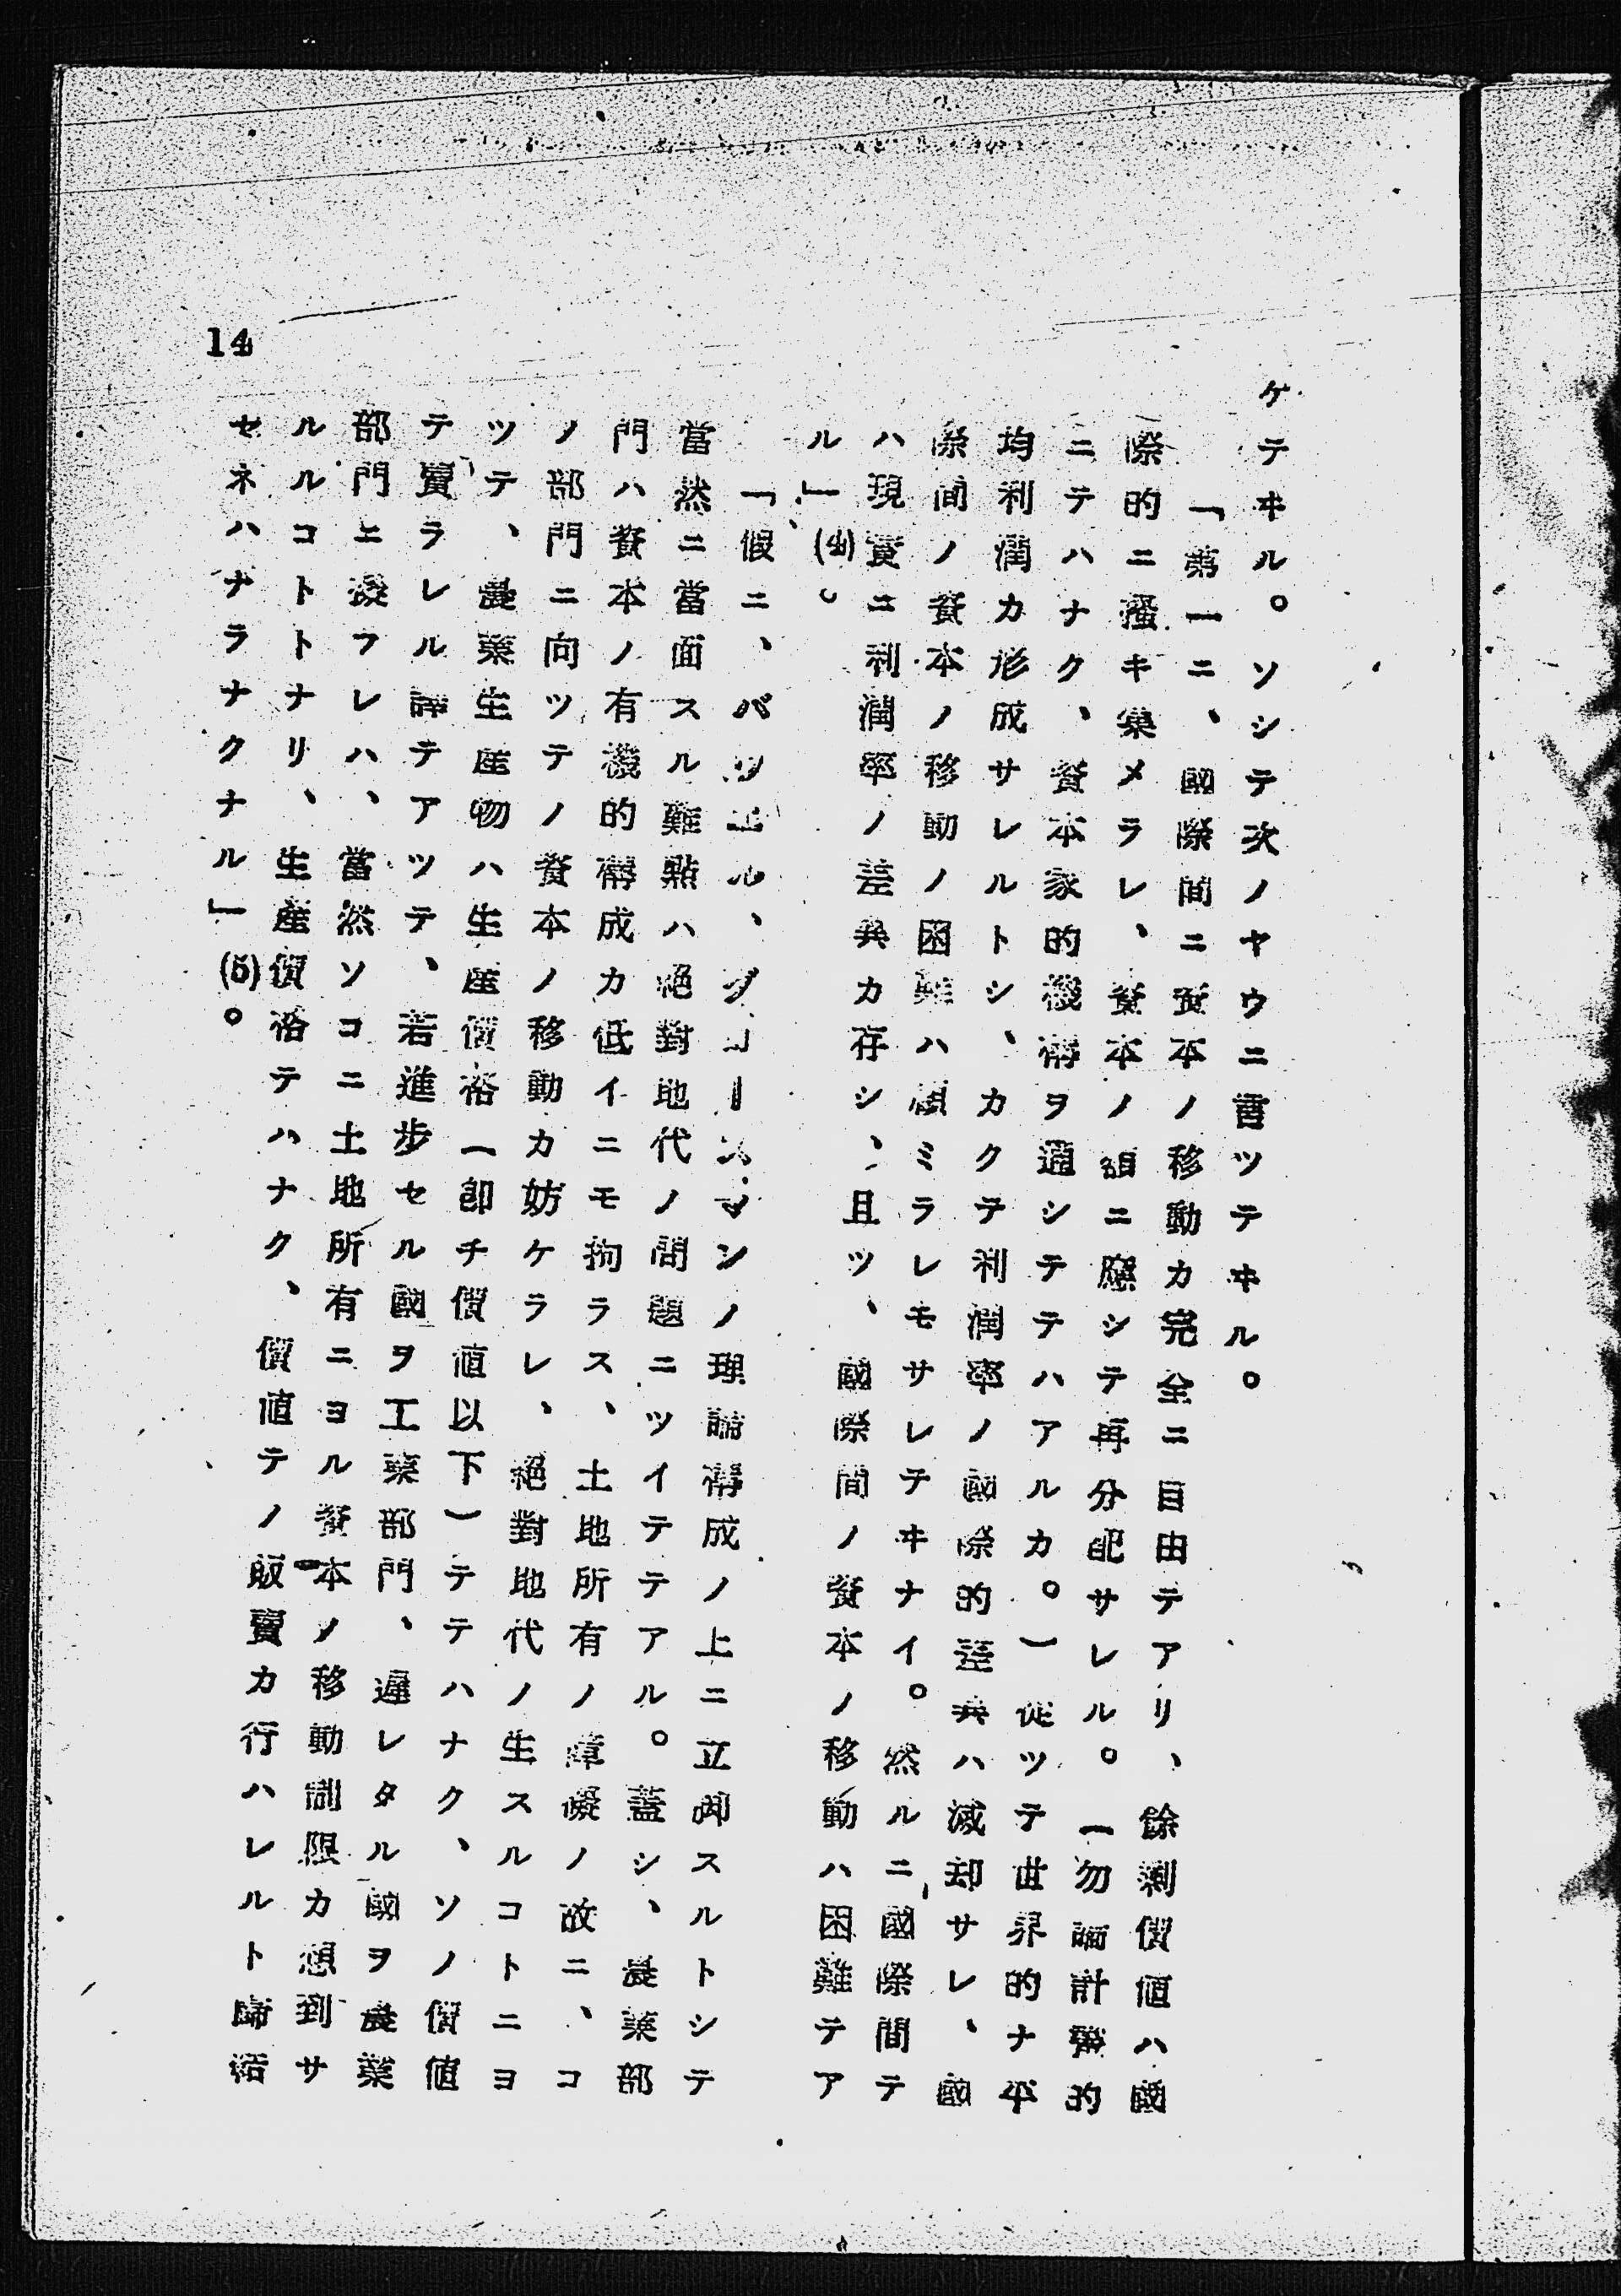 ケテヰル。ソシテ次ノヤウニ言ツテヰル。
「第一ニ、國際間ニ資本ノ移動カ完全ニ自由テアリ、餘剩價値ハ國
際的ニ掻キ集メラレ、資本ノ額ニ應シテ再分配サレル。(勿論計畫的
ニテハナク、資本家的機構ヲ通シテテハアルカ。)從ツテ世界的ナ平
均利潤カ形成サレルトシ、カクテ利潤率ノ國際的差異ハ滅却サレ、國
際間ノ資本ノ移動ノ困難ハ顧ミラレモサレテヰナイ。然ルニ國際間テ
ハ現實ニ利潤率ノ差異カ存シ、且ツ、國際間ノ資本ノ移動ハ困難テア
ル」(4)。
「假ニ、バウエル、グロースマンノ理論構成ノ上ニ立脚スルトシテ
當然ニ當面スル難點ハ絕對地代ノ問題ニツイテテアル。蓋シ、農業部
門ハ資本ノ有機的構成カ低イニモ拘ラス、土地所有ノ障礙ノ故ニ、コ
ノ部門ニ向ツテノ資本ノ移動カ妨ケラレ、絕對地代ノ生スルコトニヨ
ツテ、農業生産物ハ生産價格(卽チ價値以下)テテハナク、ソノ價値
テ賣ラレル譯テアツテ、若進步セル國ヲ工業部門、遲レタル國ヲ農業
部門ニ擬フレハ、當然ソコニ土地所有ニヨル資本ノ移動制限カ想到サ
ルルコトトナリ、生産價格テハナク、價値テノ販賣カ行ハレルト歸結
セネハナラナクナル」(5)。
14